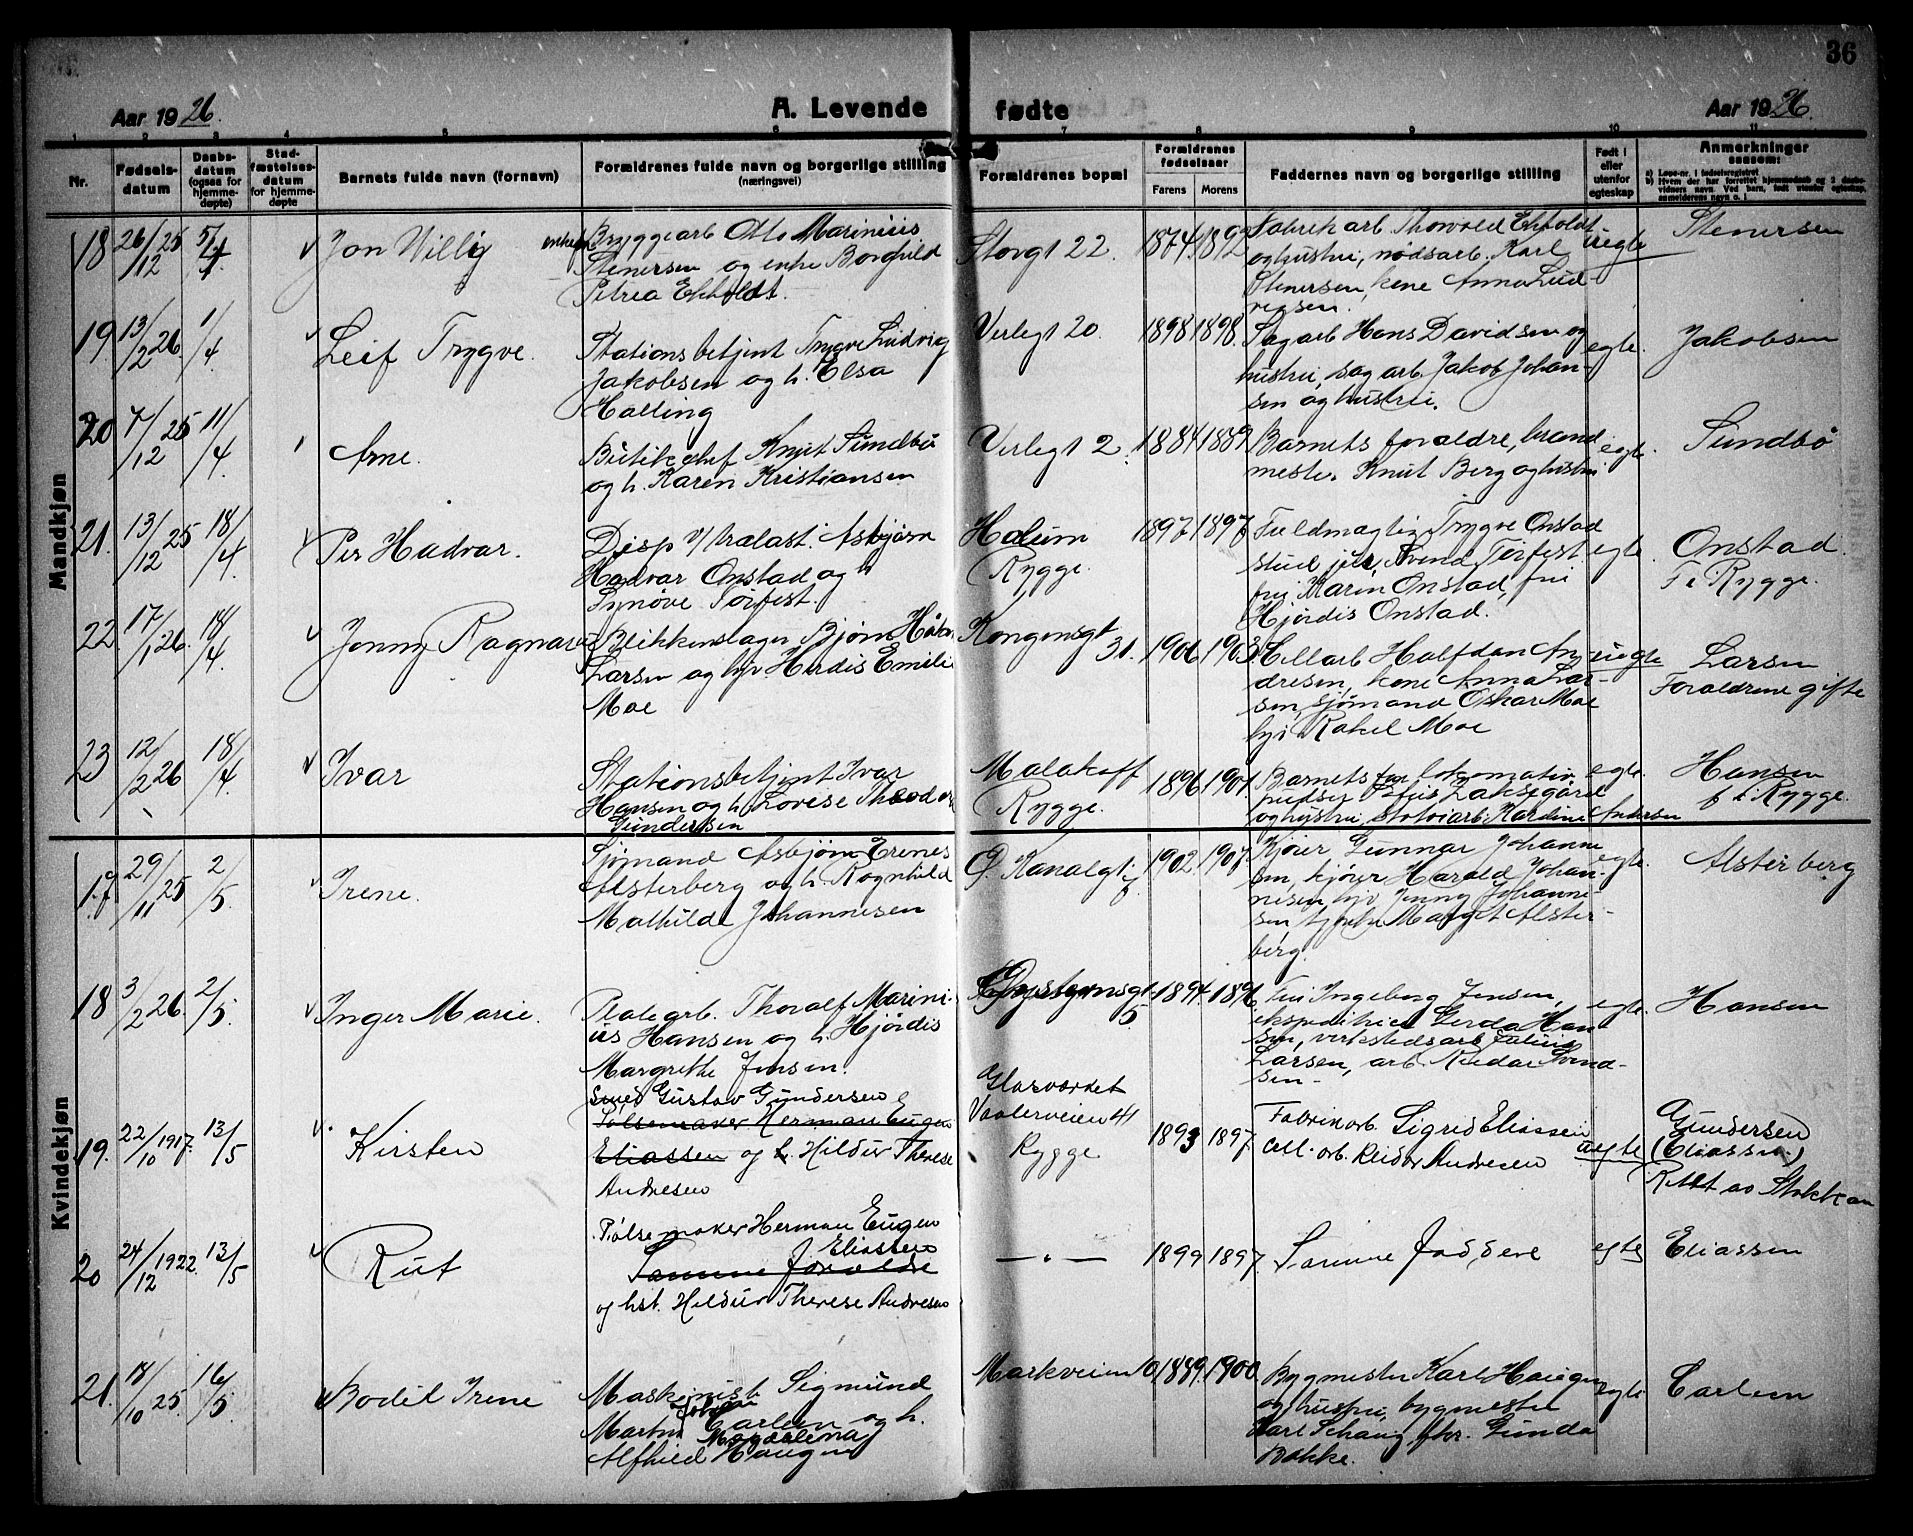 36
Aar 1926. A. Levende fødte Aar 1926.
1 2 3 4 5 6 7 8 9 10 11
Nr. Fødsels-datum Daabs-datum (ogsaa for hjemme-døpte) Stad-fæstelses-datum for hjemme-døpte Barnets fulde navn (fornavn) Forældrenes fulde navn og borgerlige stilling (næringsvei) Forældrenes bopæl Forældrenes fødselsaar Farens Morens Faddernes navn og borgerlige stilling Født i eller utenfor egteskap Anmerkninger saasom:
Mandkjøn
18 26/12 25 5/4 Jon Willy
Bryggearb Otto Marinius
Stenersen og enke Borghild
Petrea Ekholdt.
Storgt 22. 1874. 1892
Fabrikarb Thorvald Ekholdt
og hustru, nødsarb. Karl
Stenersen, kene Anna Lud-
vigsen.
uegte Stenersen
19 13/2 26 1/4 Leif Trygve.
Stationsbetjent Trygve Ludvig
Jakobsen og h. Elsa
Halling
Verlegt 20. 1898 1898.
Sagarb Hans Davidsen og
hustru, sagarb. Jakob Johan-
sen og hustru.
egte. Jakobsen
20 7/12 25 11/4 Arne.
Butikchef Knut Sundbø
og h. Karen Kristiansen
Verlegt 2. 1884 1889
Barnets foraldre, brand
mester Knut Berg og hustru
egte. Sundbø
21. 13/12 25 18/4. Per Hadvar.
Disp v/ Asbjørn
Hadvar Onstad og h
Synøve Torfest.
Halum
Rygge. 1897 1897
Fuldmægtig Trygve Onstad
stud jur. Svend Torfest
fru Karin Onstad, fru
Hjørdis Onstad.
egte Onstad.
F i Rygge.
22. 17/1 26. 18/4 Jonny Ragnar
Blikkenslager Bjørn Håkon
Larsen og hjv Herdis Emilie
Moe
Kongensgt
31. 1906 1903
Cellarb Halfdan An-
dresen, kene Anna Lar-
sen, sjømand Oskar Moe
hjv Rakel Moe
uegte Larsen
Foraldrene gifte
23 12/2 26 18/4. Ivar
Stationsbetjent Ivar
Hansen og h. Lovise Theodora
Gundersen
Malakoff
Rygge. 1896 1901.
Barnets far lokomotiv
pudser
og hustru, Kardine Andersen
egte. Hansen
f i Rygge.
Kvindekjøn
17. 29/11 25 2/5. Irene.
Sjømand Asbjørn Erenes
Alsterberg og h. Ragnhild
Mathilde Johannesen
Ø. Kanalgt 1902 1907.
Kjører Gunnar Johanne
sen, kjører Harald Johan-
nesen, hjv Jenny Johanne-
sen, Margit Alster-
berg.
egte. Alsterberg
18 3/2 26. 2/5. Inger Marie.
Platearb. Thoralf Marini-
us Hansen og h. Hjørdis
Margrethe Jensen.
5 1894. 1896
Fru Ingeborg Jensen,
ekspeditrice Gerda Han
sen, verkstedsarb Julius
Larsen, arb. Reidar Svend-
sen-
egte. Hansen
19. 22/10 1917. 13/5 Kirsten
Smed Gustav Gundersen
Pølsemaker Herman Eugen
Eliassen og h. Hildur Therese
Andresen
Glasværket
Vaalerveien 41
Rygge 1893 1897.
Fabrikarb. Sigrid Eliassen
cell. arb. Reidar Andresen
uegte Gundersen
(Eliassen.)
Rettet av Stokkan
20 24/12 1922. 13/5 Rut
Pølsemaker Herman Eugen
Eliassen
Samme foreldre
og hst. Hildur Therese Andresen
— " — 1899 1897. Samme faddere egte Eliassen
21. 18/10 25. 16/5. Bodil Irene
Maskinist Sigmund
Martin Carlem og h.
Alfhild Magdalena Haugen
Markveien 10. 1889. 1900
Bygmester Karl Haugen
og hustru, bygmester
Karl Schaug, frk. Gunda
Bakke.
egte. Carlem